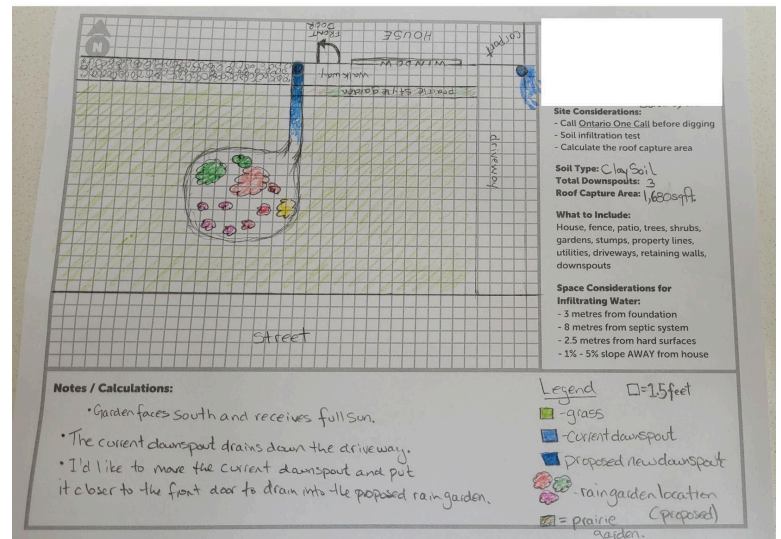 N
FRONT DOOR
HOUSE
carport
WINDOW
walkway
prairie style garden
driveway
street
Site Considerations:
- Call Ontario One Call before digging
- Soil infiltration test
- Calculate the roof capture area
Soil Type: Clay Soil
Total Downspouts: 3
Roof Capture Area: 1,680 sqft.
What to Include:
House, fence, patio, trees, shrubs,
gardens, stumps, property lines,
utilities, driveways, retaining walls,
downspouts
Space Considerations for
Infiltrating Water:
- 3 metres from foundation
- 8 metres from septic system
- 2.5 metres from hard surfaces
- 1% - 5% slope AWAY from house
Notes / Calculations:
• Garden faces South and receives full sun.
• The current downspout drains down the driveway.
• I'd like to move the current downspout and put
it closer to the front door to drain into the proposed rain garden.
Legend □=1.5 feet
-grass
-Current downspout
proposed new downspout
- rain garden location
(proposed)
= prairie
garden.